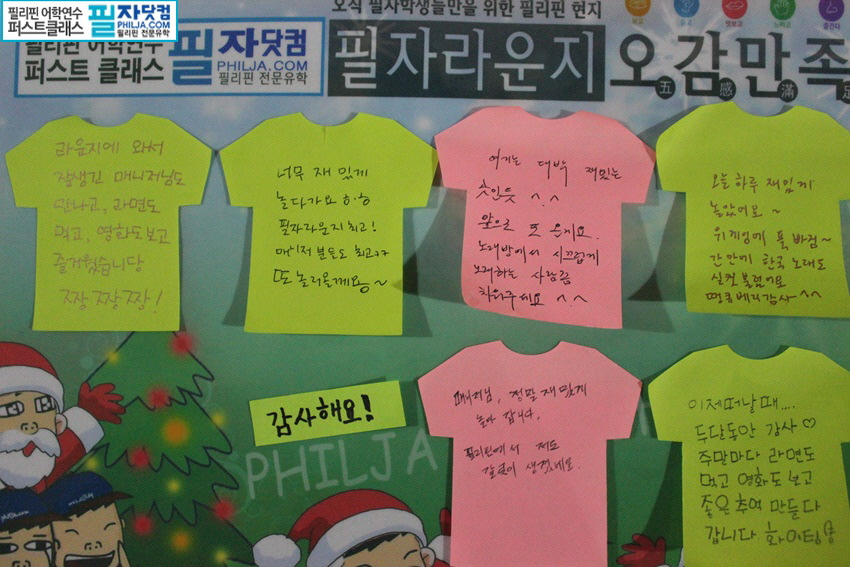 필리핀 어학연수
퍼스트클래스
필자닷컴
PHILJA.COM
필리핀 전문유학
오직 필자학생들만을 위한 필리핀 현지
필리핀 어학연수
퍼스트 클래스
필자닷컴
PHILJA.COM
필리핀 전문유학
필자라운지
오감만족
五感滿足
라운지에 와서
잘생긴 매니저님도
만나고, 라면도
먹고, 영화도보고
즐거웠습니당
짱짱짱!
너무 재밌게
놀다가요 ㅎㅎ
필자라운지 최고!
매니저 분들도 최고ㅋㅋ
또 놀러올께요용~
여기는 대박 재밌는
곳인듯 ^.^
앞으로 또 올게요.
노래방에서 시끄럽게
노래하는 사람좀
치워주세요 ^.^
오늘 하루 재밌게
놀았어요~
위게임에 푹 빠짐~
간만에 한국 노래도
실컷 불렀어요
땡큐베리감사^^
감사해요!
PHILJA
매니저님, 정말 재밌게
놀다 갑니다.
필리핀에서 저도
갈곳이 생겼네요.
이제떠날때....
두달동안 감사♡
주말마다 라면도
먹고 영화도 보고
좋은 추억 만들다
갑니다 화이팅